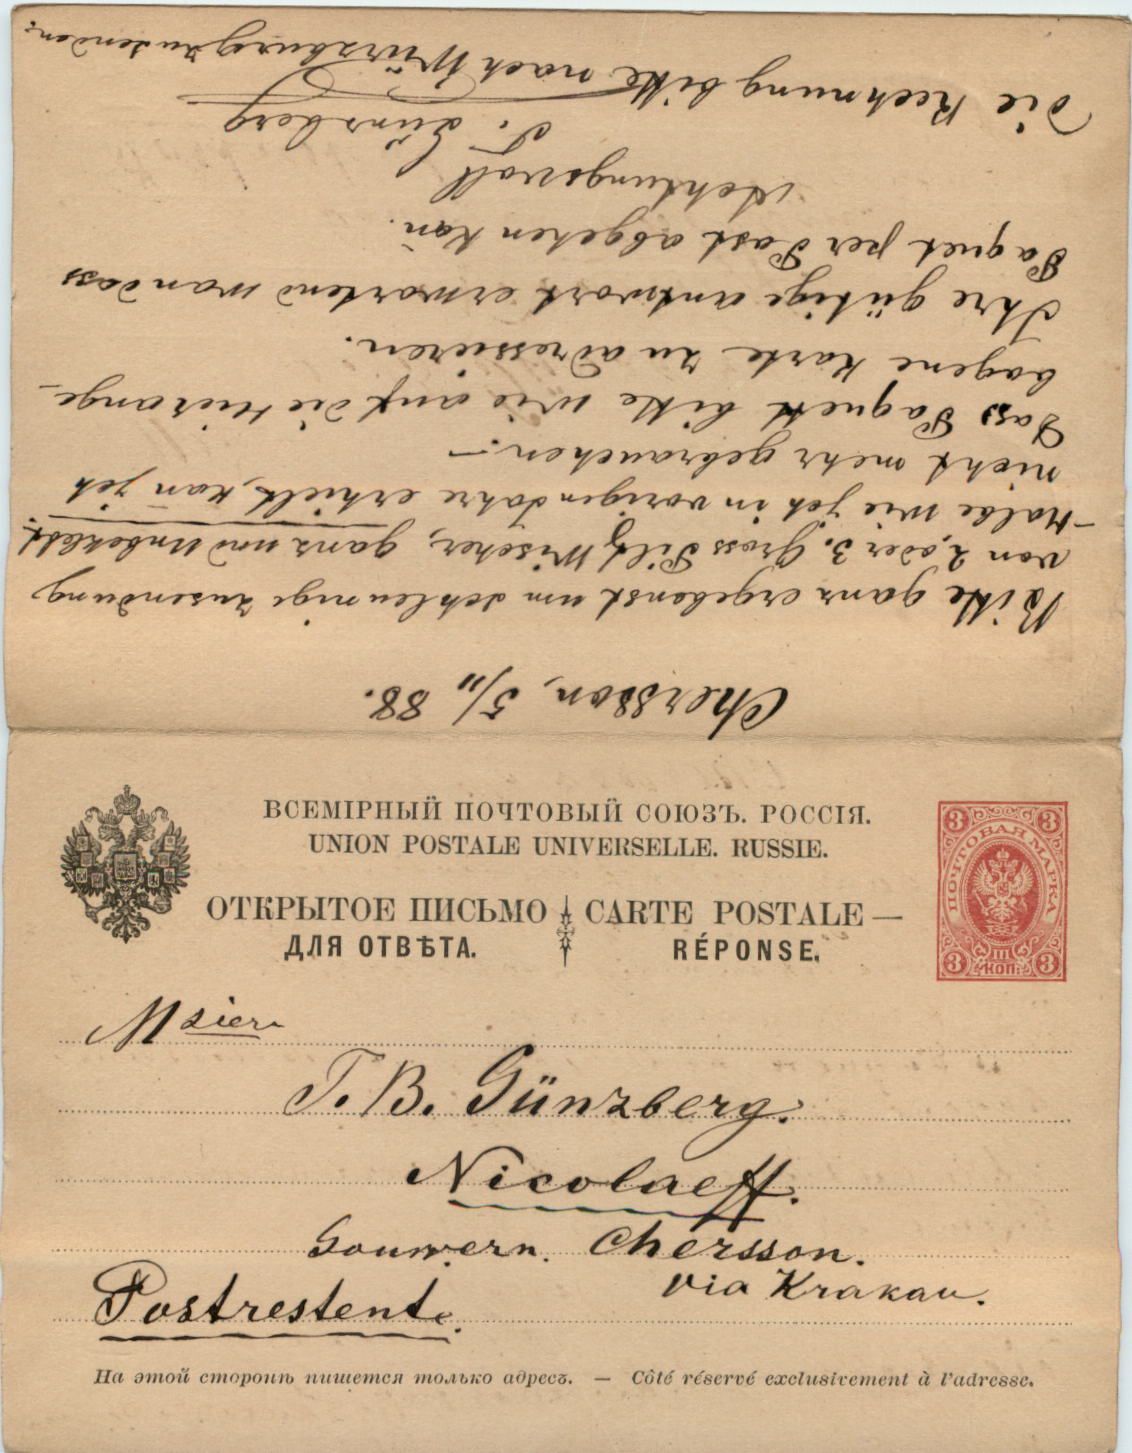 Chersson, 5/11 88.
Bitte ganz ergebenst um schleunige Zusendung
von 2, oder 3. Gross Pilz Wischer, ganz und Unbeklebt.
Halbe wie jch in vorigen Jahre erhielt, kan̄ jch
nicht mehr gebrauchen.–
Dass Paquet bitte wie auf die Hierange-
bogene Karte zu adressieren.
Ihre gütige antwort erwartend wan dass
Paquet per Post abgehen kan̄.
Achtungsvoll
T. Günzberg
Die Rechnung bitte nach Würzburg zu senden.
ВСЕМІРНЫЙ ПОЧТОВЫЙ СОЮЗЪ. РОССІЯ.
UNION POSTALE UNIVERSELLE. RUSSIE.
ОТКРЫТОЕ ПИСЬМО CARTE POSTALE —
ДЛЯ ОТВѢТА. RÉPONSE.
3 3
ПОЧТОВАЯ МАРКА
III
3 КОП: 3
Msieur
T. B. Günzberg.
Nicolaeff.
Gouwern. Chersson.
via Krakau.
Postrestente.
На этой сторонѣ пишется только адресъ. — Côté réservé exclusivement à l'adresse.